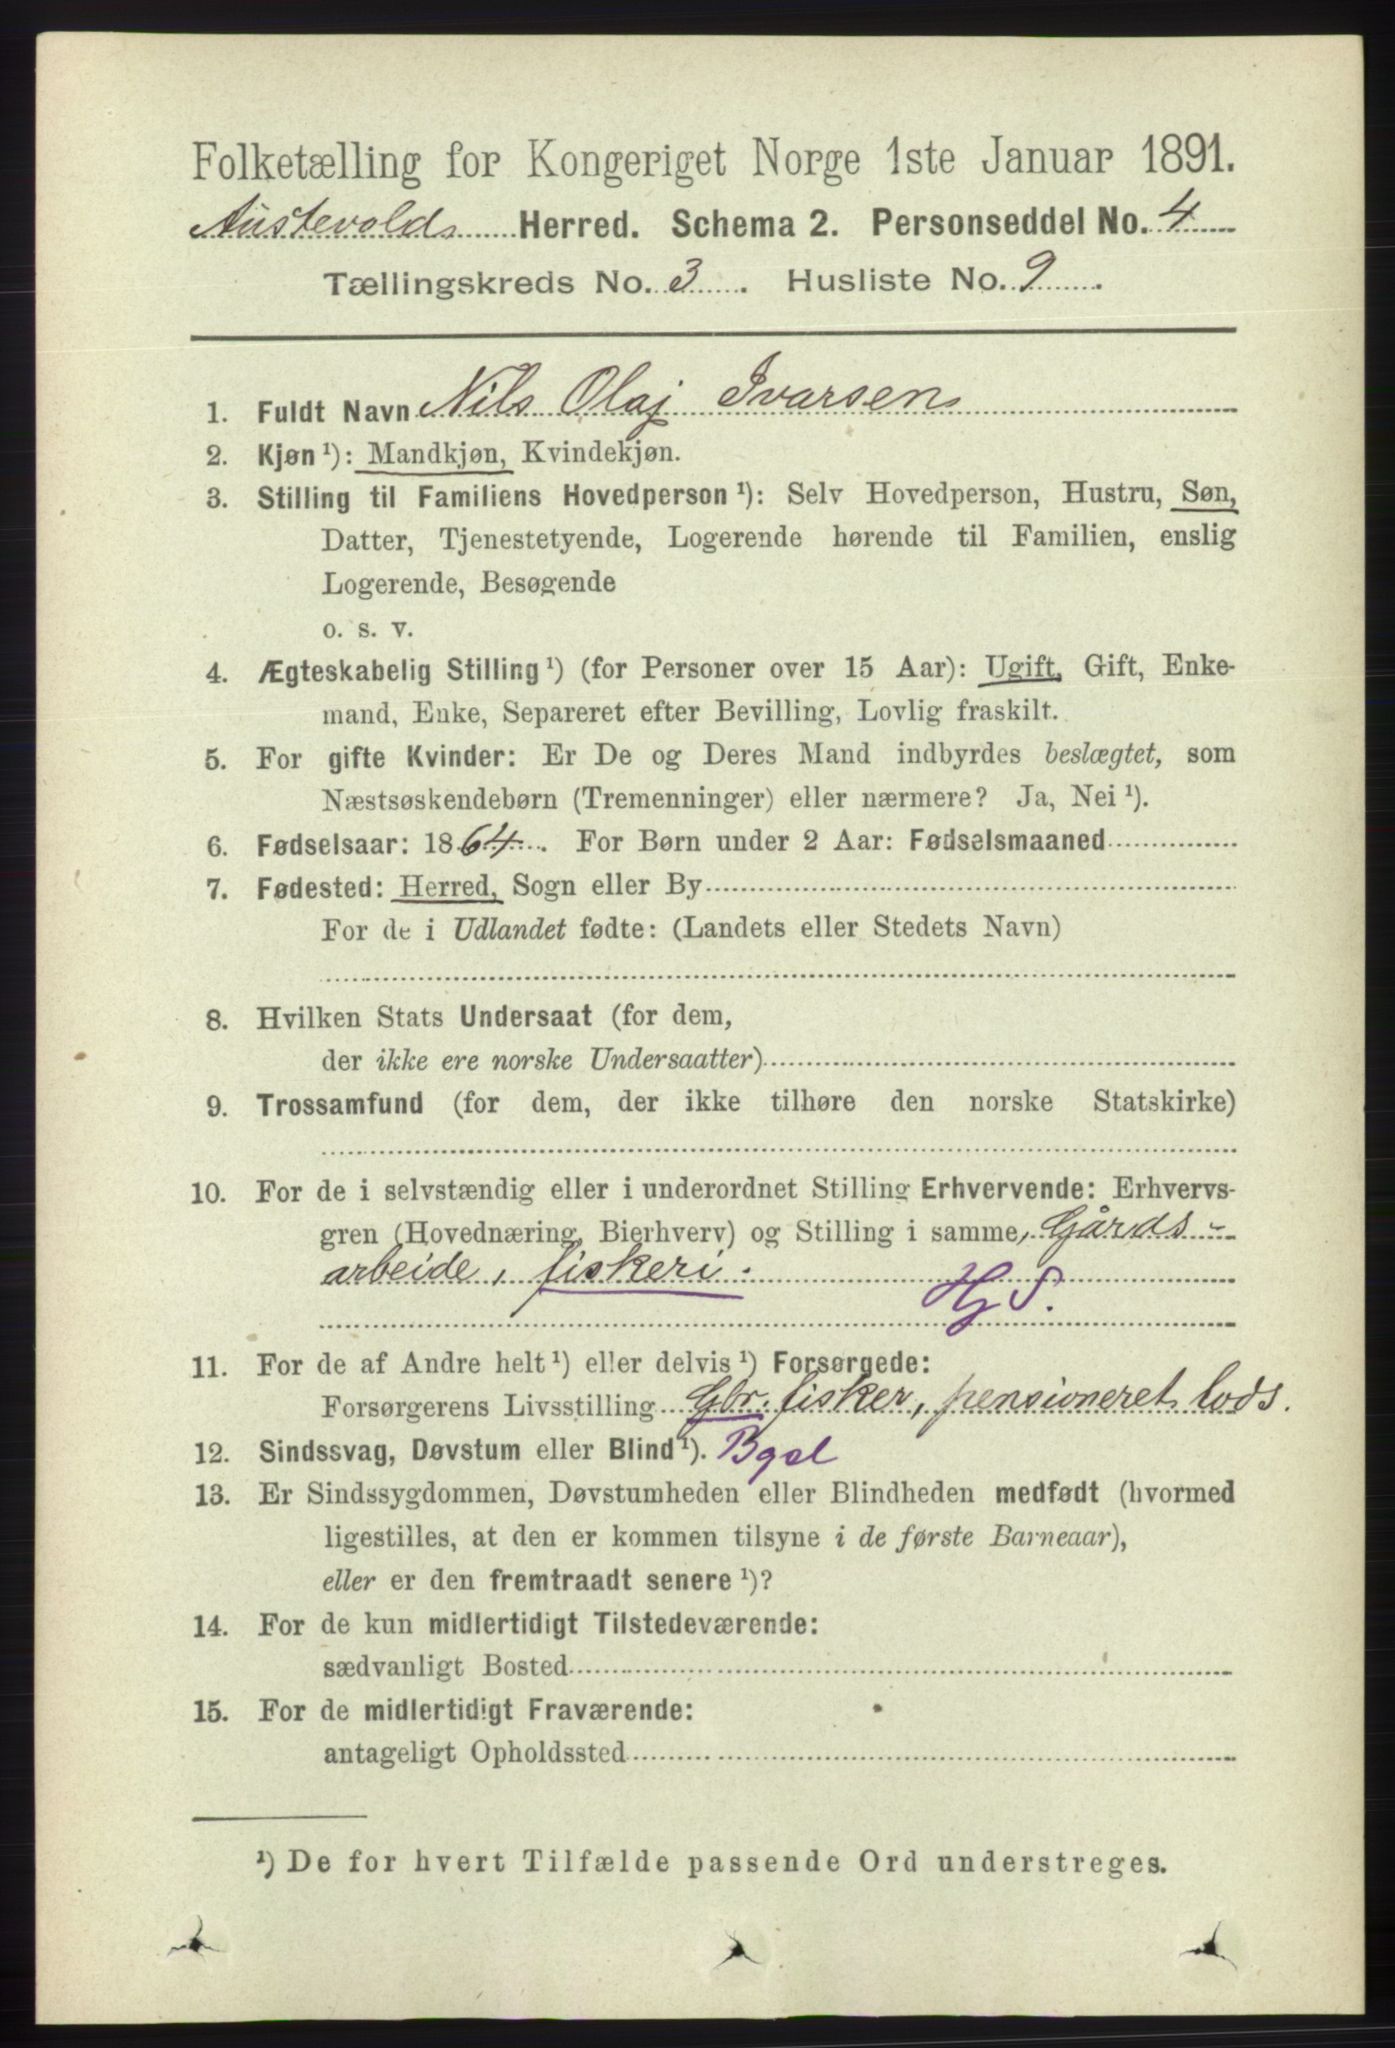 Folketælling for Kongeriget Norge 1ste Januar 1891.
Austevolds Herred. Schema 2. Personseddel No. 4
Tællingskreds No. 3. Husliste No. 9.
1. Fuldt Navn Nils Olaj Ivarsen
2. Kjøn ¹): Mandkjøn, Kvindekjøn.
3. Stilling til Familiens Hovedperson ¹): Selv Hovedperson, Hustru, Søn,
Datter, Tjenestetyende, Logerende hørende til Familien, enslig
Logerende, Besøgende
o. s. v.
4. Ægteskabelig Stilling ¹) (for Personer over 15 Aar): Ugift, Gift, Enke-
mand, Enke, Separeret efter Bevilling, Lovlig fraskilt.
5. For gifte Kvinder: Er De og Deres Mand indbyrdes beslægtet, som
Næstsøskendebørn (Tremenninger) eller nærmere? Ja, Nei ¹).
6. Fødselsaar: 1864. For Børn under 2 Aar: Fødselsmaaned
7. Fødested: Herred, Sogn eller By
For de i Udlandet fødte: (Landets eller Stedets Navn)
8. Hvilken Stats Undersaat (for dem,
der ikke ere norske Undersaatter)
9. Trossamfund (for dem, der ikke tilhøre den norske Statskirke)
10. For de i selvstændig eller i underordnet Stilling Erhvervende: Erhvervs-
gren (Hovednæring, Bierhverv) og Stilling i samme, Gårds-
arbeide, fiskeri.
Hj S.
11. For de af Andre helt ¹) eller delvis ¹) Forsørgede:
Forsørgerens Livsstilling Gbr. fisker, pensioneret lods.
12. Sindssvag, Døvstum eller Blind ¹). Bgsl
13. Er Sindssygdommen, Døvstumheden eller Blindheden medfødt (hvormed
ligestilles, at den er kommen tilsyne i de første Barneaar),
eller er den fremtraadt senere ¹)?
14. For de kun midlertidigt Tilstedeværende:
sædvanligt Bosted
15. For de midlertidigt Fraværende:
antageligt Opholdssted
¹) De for hvert Tilfælde passende Ord understreges.